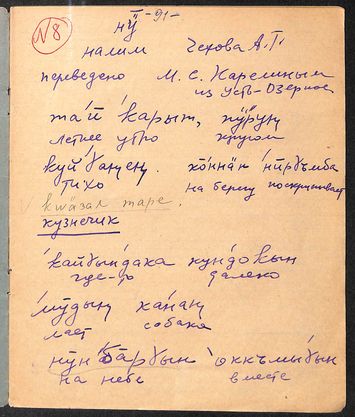 -91-
№8
нӱ
налим Чехова А.П.
переведено М. С. Карелиным
из Усть-Озерное
та'й 'карыт, пӱруӊ
летнее утро кругом
куй'ɣанӡеӊ. хо́ннӓн 'ниրɣъмба
тихо на берегу поскрипывает
кwазал таре.
кузнечик
'кайɣын'дака кун'докын
где-то далеко
'мӯдыӊ ка'наӊ
лает собака
нӯн 'барɣын 'оккъмыɣын
на небе вместе